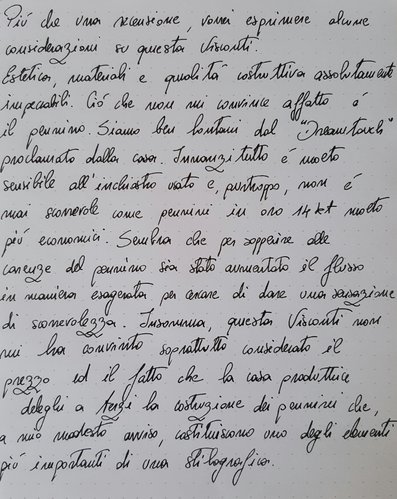 Più che una recensione, vorrei esprimere alcune
considerazioni su questa Visconti.
Estetica, materiali e qualità costruttiva assolutamente
impeccabili. Ciò che non mi convince affatto è
il pennino. Siamo ben lontani dal "Dreamtouch"
proclamato dalla casa. Innanzitutto è molto
sensibile all'inchiostro usato e, purtroppo, non è
mai scorrevole come pennini in oro 14kt molto
più economici. Sembra che per sopperire alle
carenze del pennino sia stato aumentato il flusso
in maniera esagerata per cercare di dare una sensazione
di scorrevolezza. Insomma, questa Visconti non
mi ha convinto soprattutto considerato il
prezzo ed il fatto che la casa produttrice
deleghi a terzi la costruzione dei pennini che,
a mio modesto avviso, costituiscono uno degli elementi
più importanti di una stilografica.